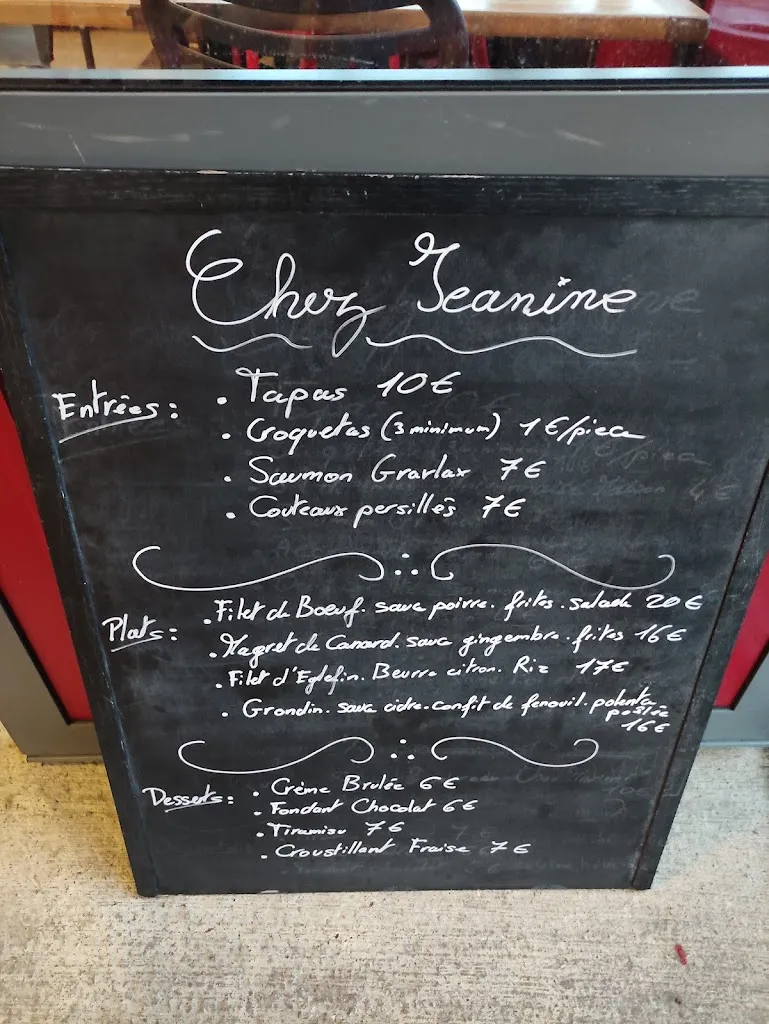 Chez Jeanine
Entrées :
. Tapas 10€
. Croquetas (3 minimum) 1€/pieca
. Saumon Gravlax 7€
. Couteaux persillés 7€
Plats :
. Filet de Boeuf. sauce poivre. frites. salade 20€
. Magret de Canard. sauce gingembre. frites 16€
. Filet d'Eglefin. Beurre citron. Riz 17€
. Grondin. sauce cidre. confit de fenouil. polenta
poêlée
16€
Desserts :
. Crème Brulée 6€
. Fondant Chocolat 6€
. Tiramisu 7€
. Croustillant Fraise 7€